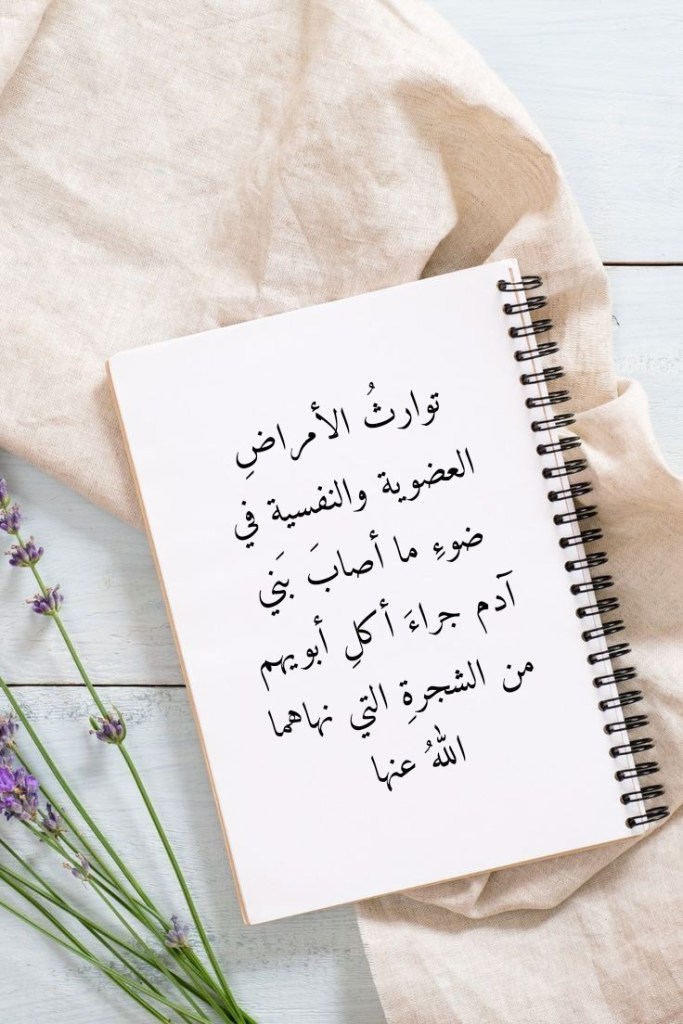 توارثُ الأمراضِ
العضوية والنفسية في
ضوءِ ما أصابَ بَني
آدم جراءَ أكلِ أبويهم
من الشجرةِ التي نهاهما
اللهُ عنها